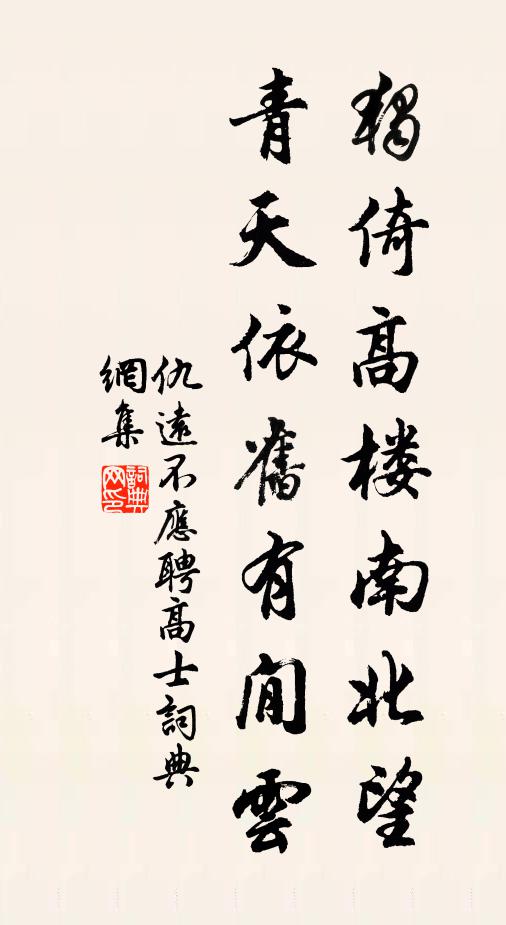 獨倚高楼南北望
青天依舊有閒雲
仇遠不應聘高士詞典
網集
詞典網印